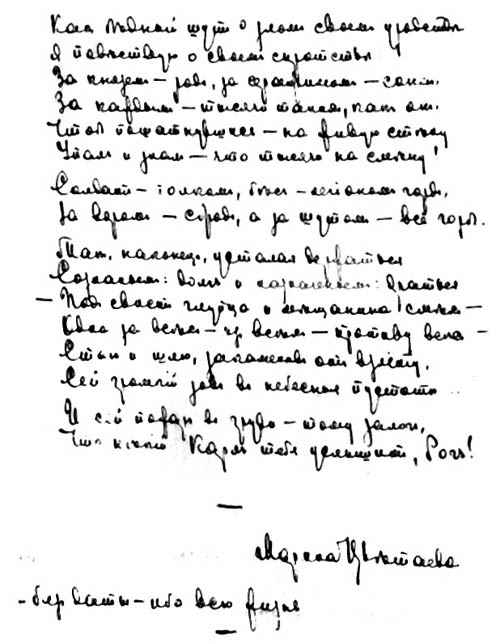 Как бѣдный шут о злом своем уродствѣ
Я повѣствую о своем сиротствѣ
За князем — род, за серафимом — сонм.
За каждым — тысячи таких, как он.
Чтоб пошатнувшись — на живую стѣну
Упал и знал — что тысячи на смѣну!
Солдат — полком, бѣс — легионом горд.
За вором — сброд, а за шутом — всё горб.
Так, наконец, усталая держаться
Сознаньем: долг и назначеньем: драться
— Под свист глупца и мѣщанина смѣх —
Одна за всѣх — из всѣх — противу всѣх —
Стою и шлю, закаменѣв от взлёту,
Сей громкий зов в небесныя пустоты.
И сей пожар в груди — тому залог,
Что нѣкий Карл тебя услышит, Рог!
Марина Цвѣтаева